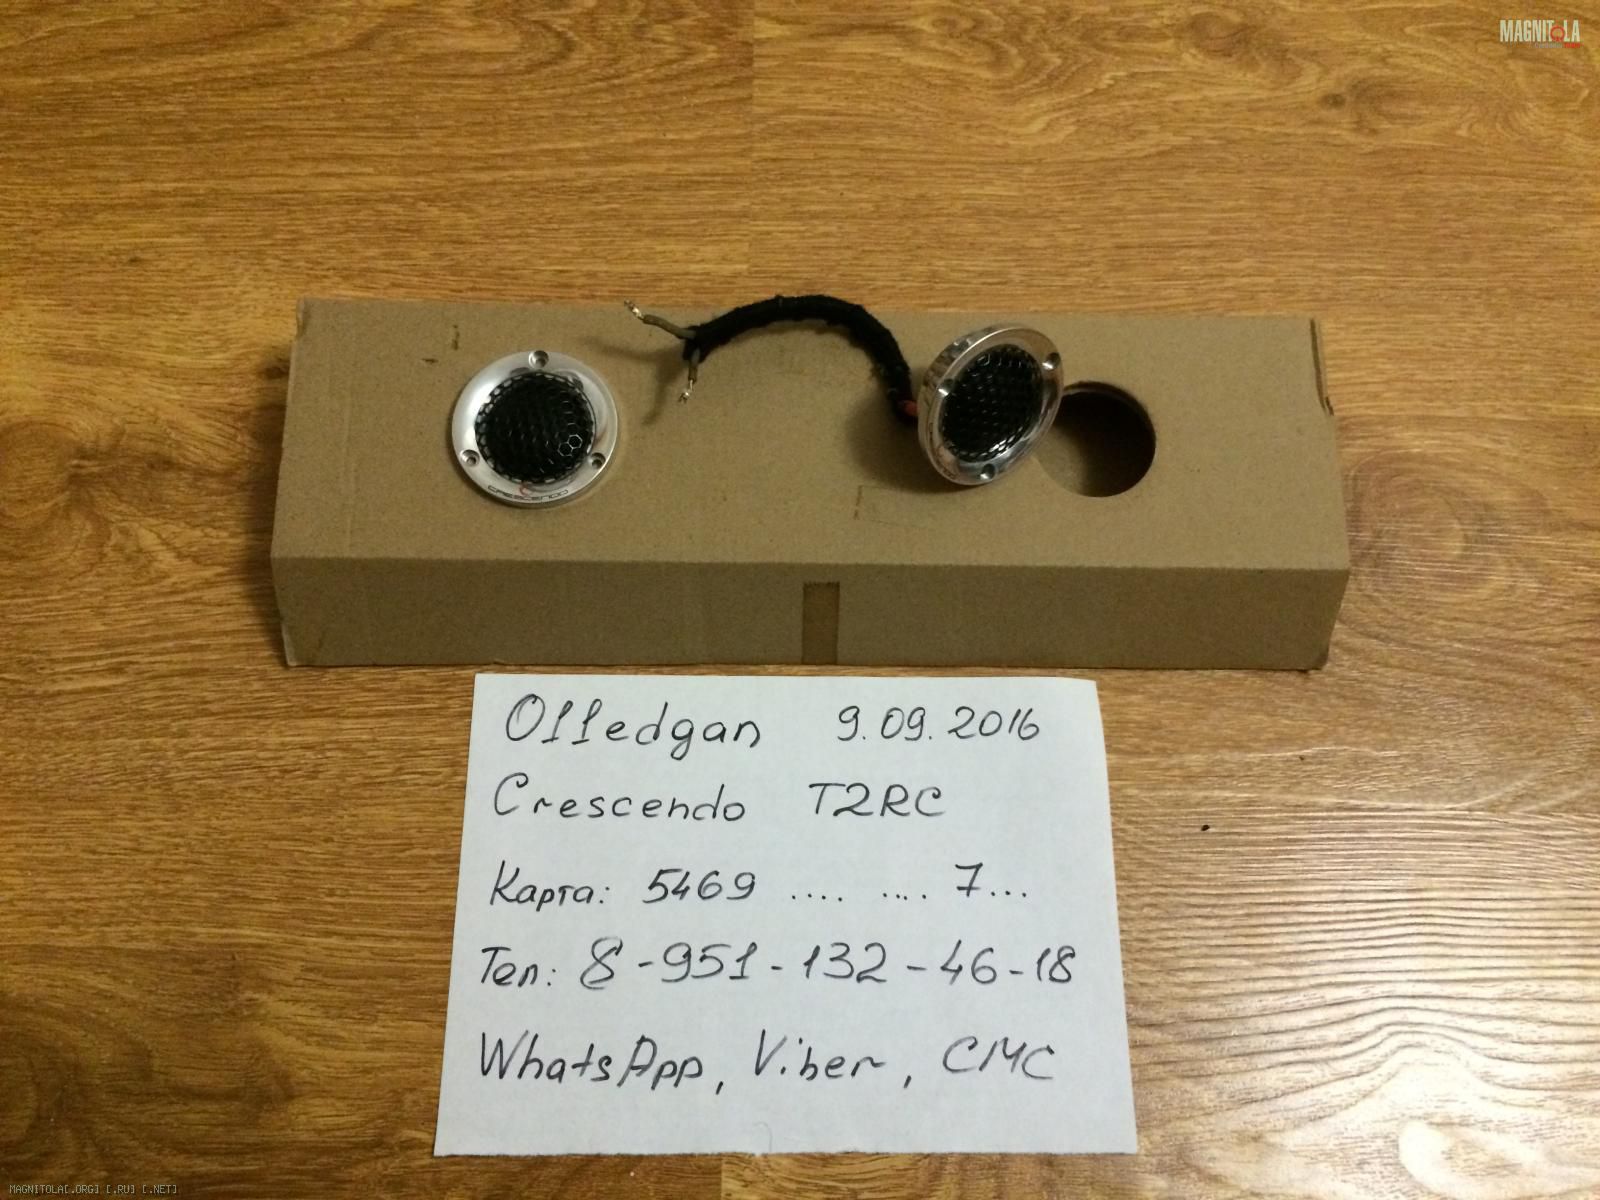 MAGNITOLA
CRESCENDO
O11edgan 9.09.2016
Crescendo T2RC
Карта: 5469 .... .... 7...
Тел: 8-951-132-46-18
WhatsApp, Viber, СМС
MAGNITOLA[.ORG] [.RU] [.NET]